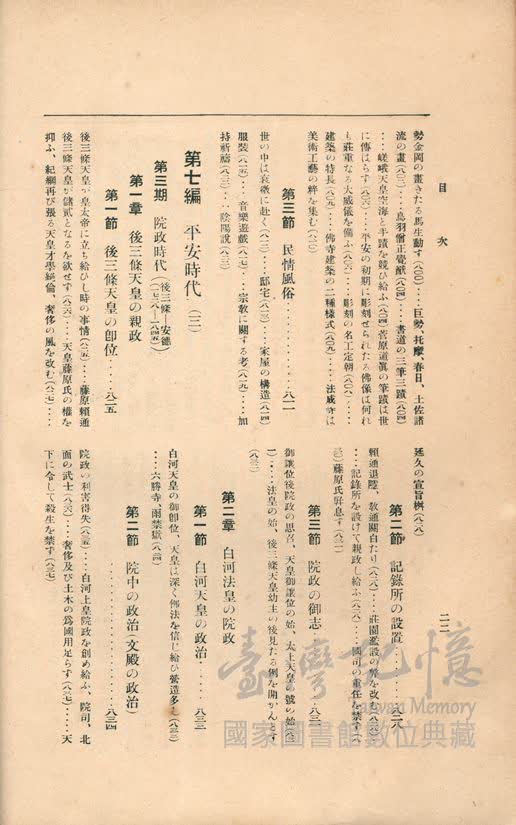 目次
二二
勢金岡の畫きたる馬生動す(八〇三)‥‥巨勢、托摩、春日、土佐諸
流の畫(八〇三)‥‥鳥羽僧正覺猷(八〇四)‥‥書道の三筆三蹟(八〇四)
‥‥嵯峨天皇空海と手蹟を競ひ給ふ(八〇四)菅原道眞の筆蹟は世
に傳はらず(八〇六)‥‥平安の初期に彫刻せられたる佛像は何れ
も莊重なる大威儀を備ふ(八〇六)‥‥彫刻の名工定朝(八〇八)‥‥
建築の特長(八〇九)‥‥佛寺建築の二種樣式(八〇九)‥‥法成寺は
美術工藝の粹を集む(八一〇)
第三節 民情風俗‥‥‥‥八一一
世の中は哀微に赴く(八一一)‥‥邸宅(八一三)‥‥家屋の構造(八一四)
服裝(八一五)‥‥音樂遊戲(八一七)‥‥宗敎に關する考(八一九)‥‥加
持祈禱(八二三)‥‥陰陽說(八二三)
第七編 平安時代(三)
第三期 院政時代(後三條—安德 一七二八—一八四五)
第一章 後三條天皇の親政
第一節 後三條天皇の卽位‥‥八二五
後三條天皇が皇太帝に立ち給ひし時の事情(八二五)‥‥藤原賴通
後三條天皇が儲貳となるを欲せず(八二六)‥‥天皇藤原氏の權を
抑ふ、紀綱再び張る天皇才學絕倫、奢侈の風を改む(八二七)‥‥
延久の宣旨桝(八二八)
第二節 記錄所の設置‥‥‥八二八
賴通退隱、敎通關白たり(八二八)‥‥莊園濫設の弊を改む(八二八)
‥‥記錄所を設けて親政し給ふ(八二八)‥‥國司の重任を禁ず(八
三〇)藤原氏屛息す(八三一)
第三節 院政の御志‥‥‥‥八三一
御讓位後院政の思召、天皇御讓位の始、太上天皇の號の始(八三
一)‥‥法皇の始、後三條天皇幼主の後見たる例を開かんとす
(八三二)
第二章 白河法皇の院政
第一節 白河天皇の政治‥‥‥八三三
白河天皇の御卽位、天皇は深く佛法を信じ給ひ營造多し(八三三)
‥‥六勝寺、雨禁獄(八三四)
第二節 院中の政治(文殿の政治)
‥‥‥‥八三四
院政の利害得失(八三五)‥‥白河上皇院政を創め給ふ、院司、北
面の武士(八三六)‥‥奢侈及び土木の爲國用足らず(八三七)‥‥天
下に令して殺生を禁ず(八三七)
臺灣記憶
Taiwan Memory
國家圖書館數位典藏